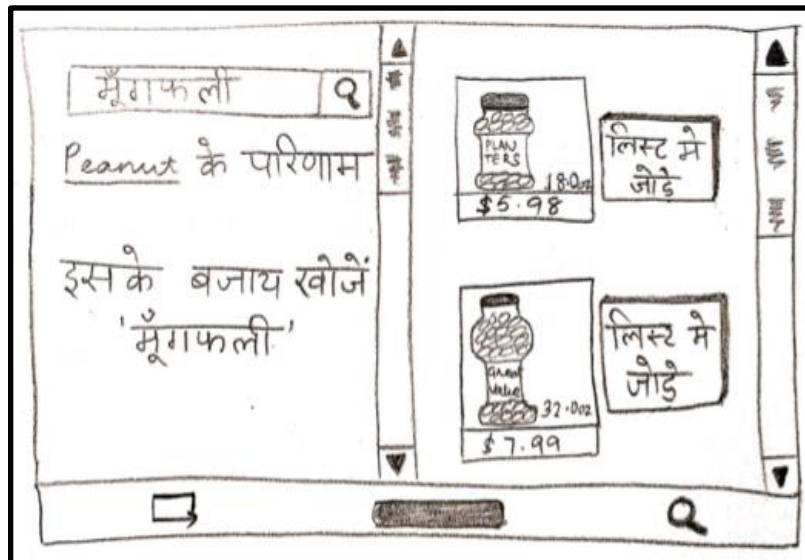 मूँगफली
Peanut के परिणाम
इसके बजाय खोजें
'मूँगफली'
PLAN
TERS
18.0oz
$5.98
लिस्ट मे
जोड़े
Great
Value
32.0oz
$7.99
लिस्ट मे
जोड़े